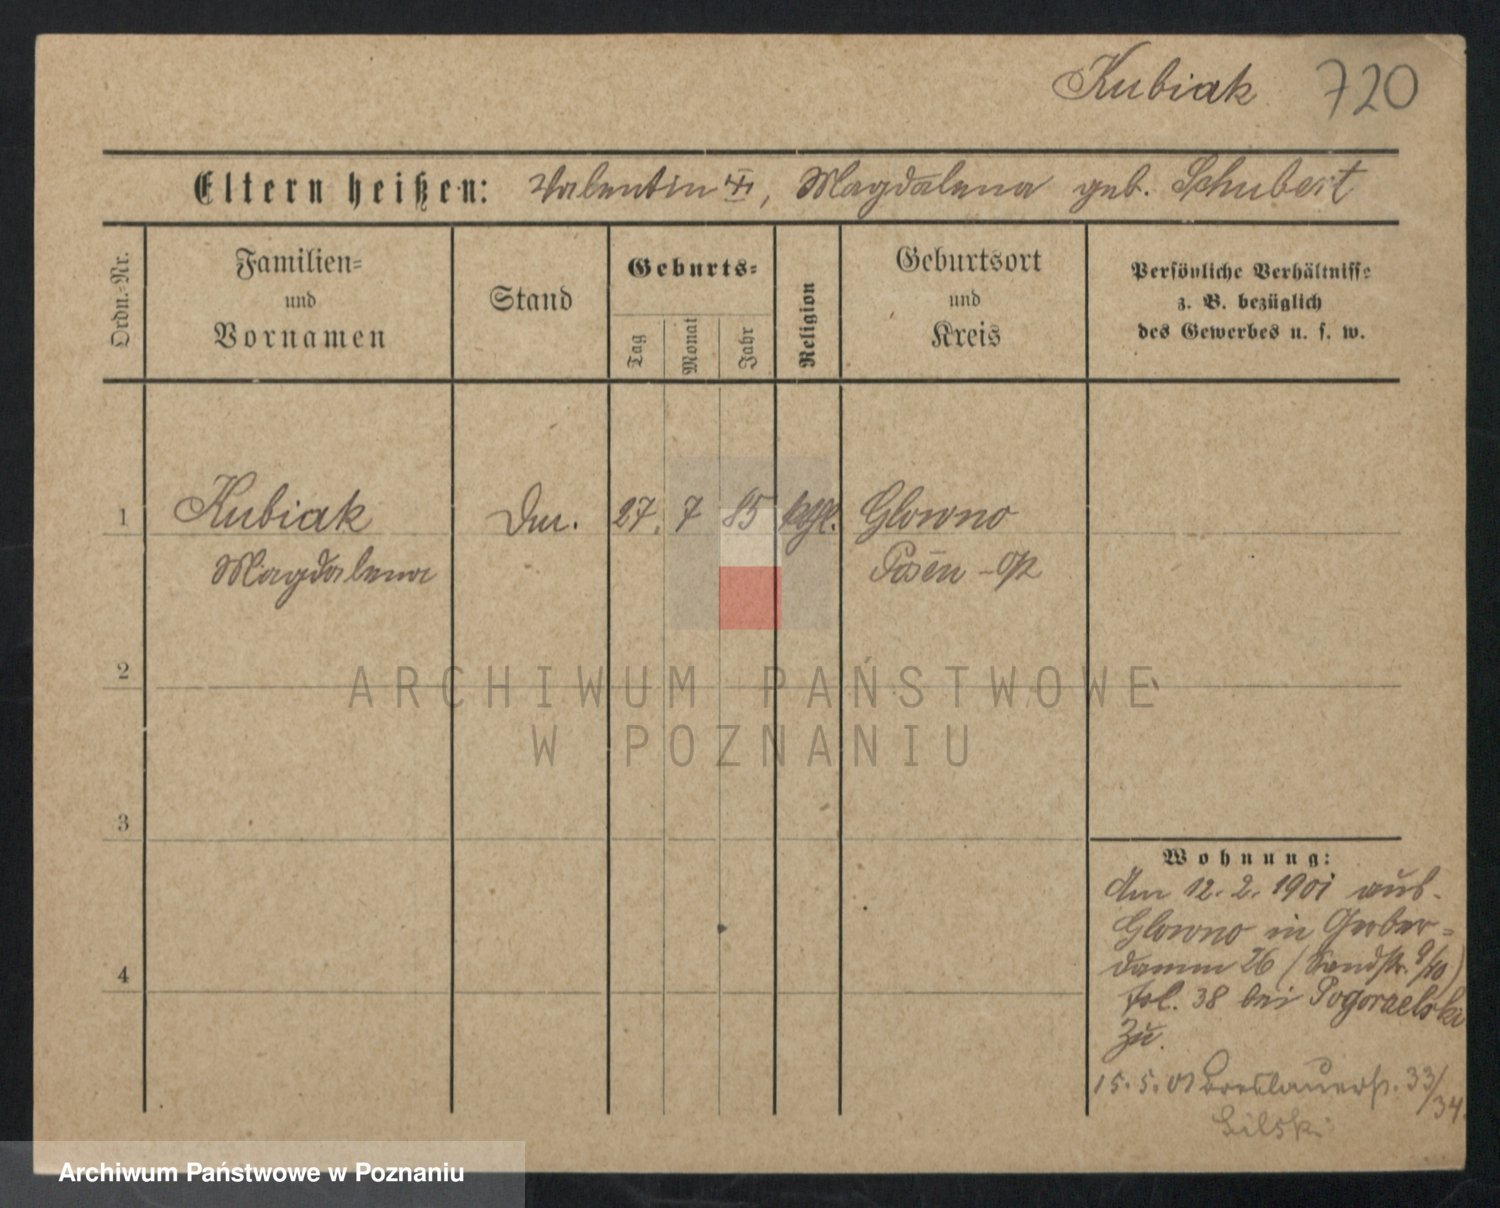 Kubiak 720
Eltern heißen: Valentin, Magdalena geb. Schubert
Ordn.-Nr.
Familien-
und
Vornamen
Stand
Geburts-
Tag
Monat
Jahr
Religion
Geburtsort
und
Kreis
Persönliche Verhältnisse
z. B. bezüglich
des Gewerbes u. s. w.
1 Kubiak 27. 7 85 Glowno
Magdalena Posen
2
ARCHIWUM PAŃSTWOWE
W POZNANIU
3
Wohnung:
Am 12. 2. 1901 aus
Glowno in Gerber-
damm 26 (Sandstr. 9/10)
38 bei Pogoraelski
zu.
15. 5. 01 Breslauerst. 33/34.
4
Archiwum Państwowe w Poznaniu